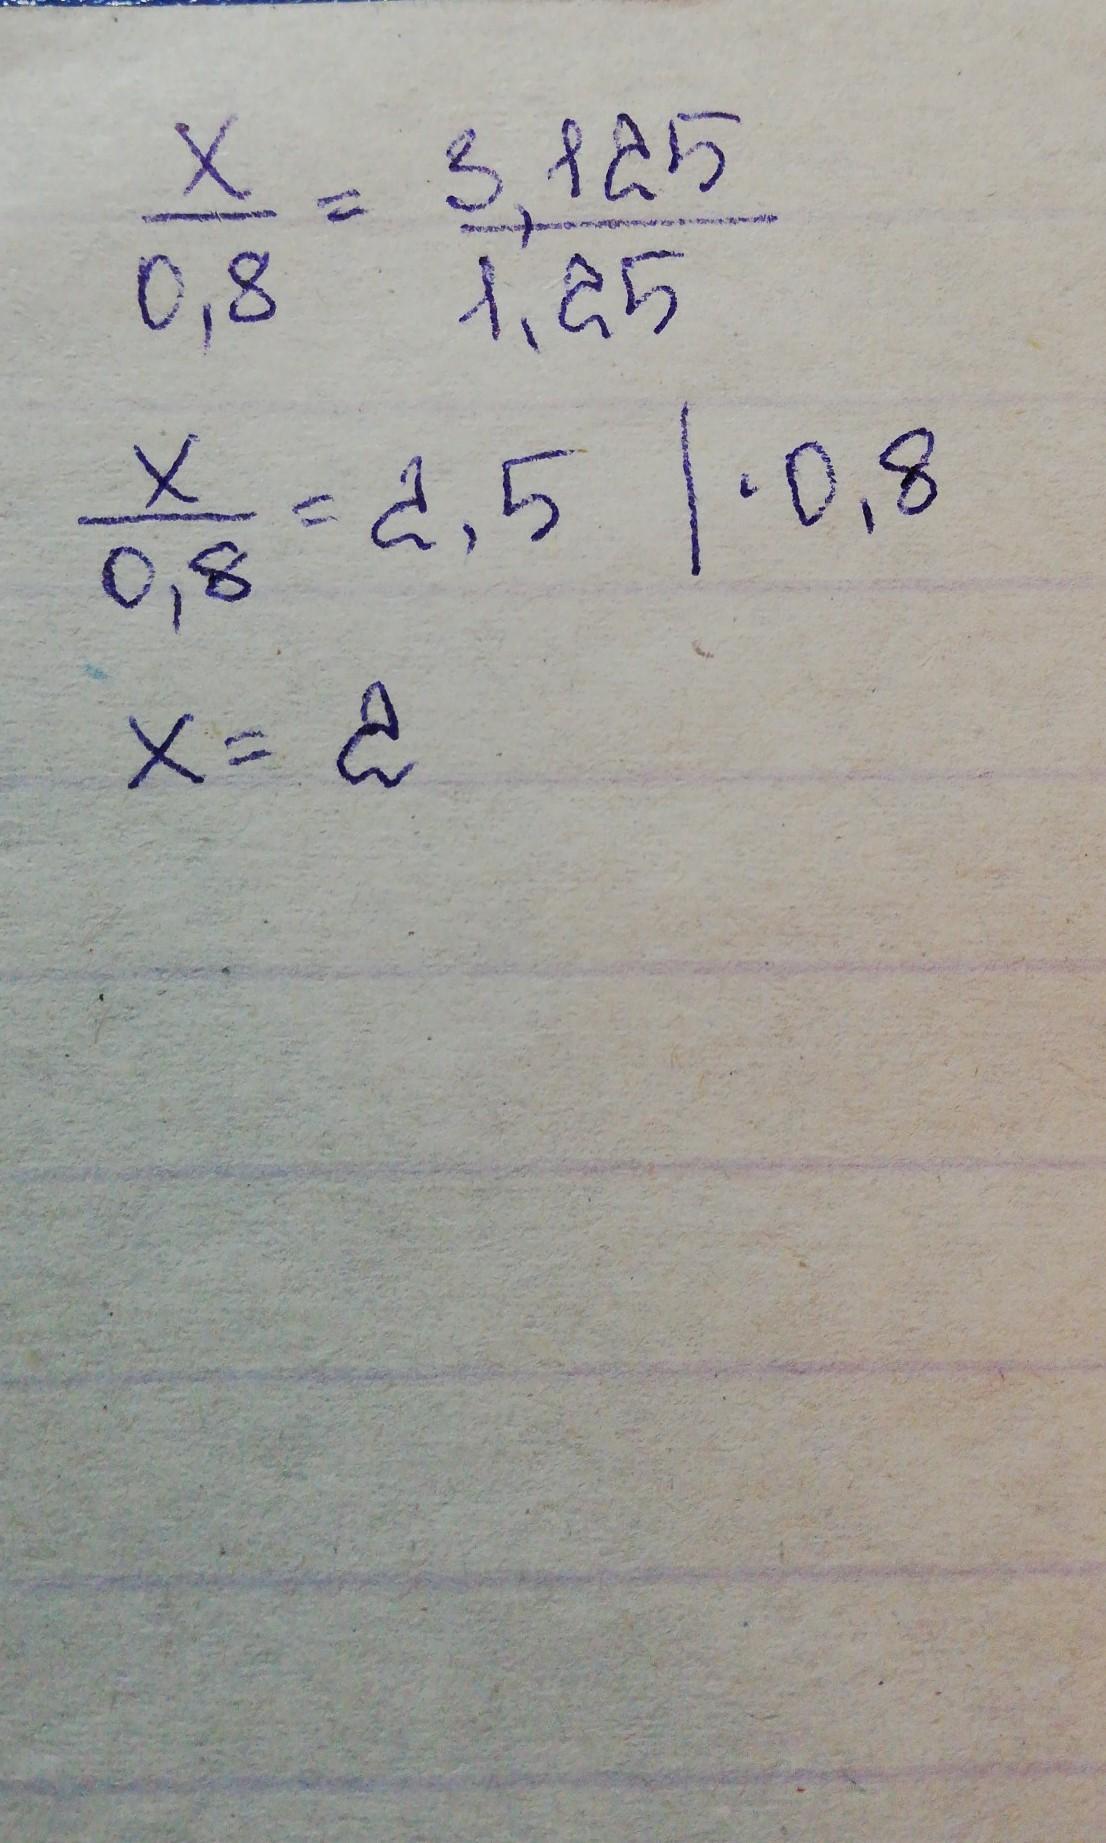 x/0,8 = 3,125/1,25
x/0,8 = 2,5 | · 0,8
x = 2